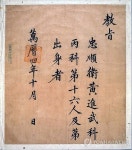 教旨
忠順衛黃進武科
丙科第十六人及第
出身者
萬曆四年十月　日